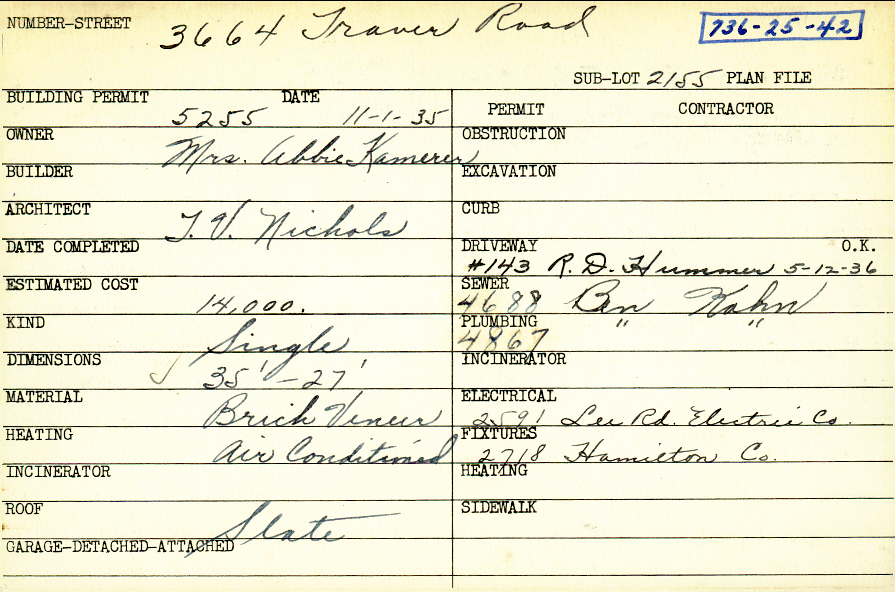 NUMBER-STREET 3664 Traver Road 736-25-42
SUB-LOT 2155 PLAN FILE
BUILDING PERMIT 5255 DATE 11-1-35
OWNER Mrs. Abbie Kamerer
BUILDER
ARCHITECT T. V. Nichols
DATE COMPLETED
ESTIMATED COST 14,000.
KIND Single
DIMENSIONS 35' - 27'
MATERIAL Brick Veneer
HEATING Air Conditioned
INCINERATOR
ROOF Slate
GARAGE-DETACHED-ATTACHED
PERMIT CONTRACTOR
OBSTRUCTION
EXCAVATION
CURB
DRIVEWAY O.K.
#143 R. D. Hummer 5-12-36
SEWER
4688 Ben Kahn
PLUMBING " "
4867
INCINERATOR
ELECTRICAL
2591 Lee Rd. Electric Co.
FIXTURES
2718 Hamilton Co.
HEATING
SIDEWALK